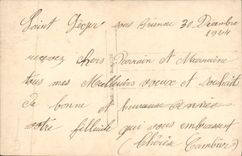 Saint Jean sous Brienne 30 Décembre
1944
recevez chers Parrain et Marraine
tous mes Meilleurs voeux et souhaits
de bonne et heureuse année
votre filleule qui vous embrassent
(Thérèse Cambier)